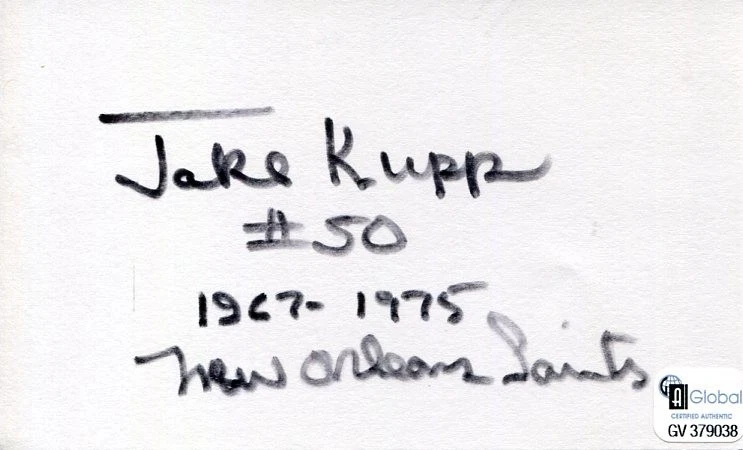 Jake Kupp
#50
1967-1975
New Orleans Saints
A Global
CERTIFIED AUTHENTIC
GV 379038